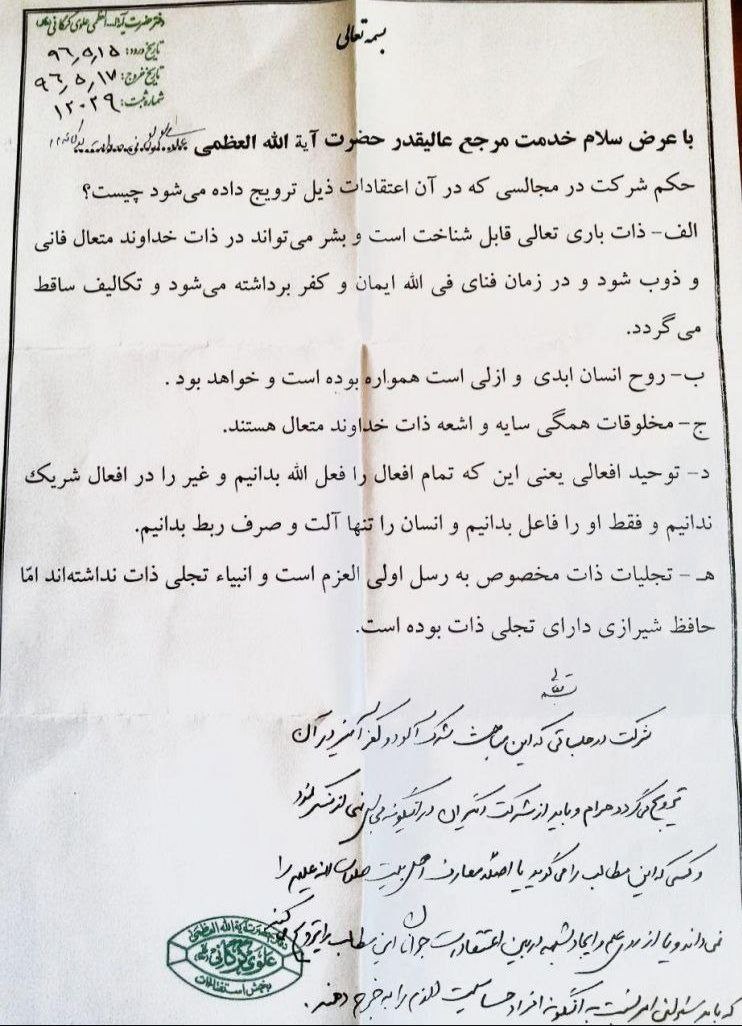 بسمه تعالی
دفتر حضرت آیة الله العظمی علوی گرگانی
تاریخ ورود: ۹۶٫۵٫۱۵
تاریخ خروج: ۹۶٫۵٫۱۷
شماره ثبت: ۱۲۰۲۹
با عرض سلام خدمت مرجع عالیقدر حضرت آیة الله العظمی
حکم شرکت در مجالسی که در آن اعتقادات ذیل ترویج داده می‌شود چیست؟
الف- ذات باری تعالی قابل شناخت است و بشر می‌تواند در ذات خداوند متعال فانی
و ذوب شود و در زمان فنای فی الله ایمان و کفر برداشته می‌شود و تکالیف ساقط
می‌گردد.
ب- روح انسان ابدی و ازلی است همواره بوده است و خواهد بود .
ج- مخلوقات همگی سایه و اشعه ذات خداوند متعال هستند.
د- توحید افعالی یعنی این که تمام افعال را فعل الله بدانیم و غیر را در افعال شریک
ندانیم و فقط او را فاعل بدانیم و انسان را تنها آلت و صرف ربط بدانیم.
هـ - تجلیات ذات مخصوص به رسل اولی العزم است و انبیاء تجلی ذات نداشته‌اند امّا
حافظ شیرازی دارای تجلی ذات بوده است.
بسمه تعالی
شرکت در جلساتی که این مباحث شرک آلود و کفر آمیز در آن
ترویج می‌گردد حرام و باید از شرکت دیگران در اینگونه مجالس نهی از منکر شود
و کسی که این مطالب را می‌گوید یا اصلاً معارف اهل بیت صلوات الله علیهم را
نمی‌داند و یا از روی علم و ایجاد شبهه در بین اعتقادات جوانان این مطالب را ترویج می‌کند
که باید مسئولین امر نسبت به اینگونه افراد حساسیت لازم را به خرج دهند.
دفتر حضرت آیة الله العظمی
علوی گرگانی
بخش استفتائات